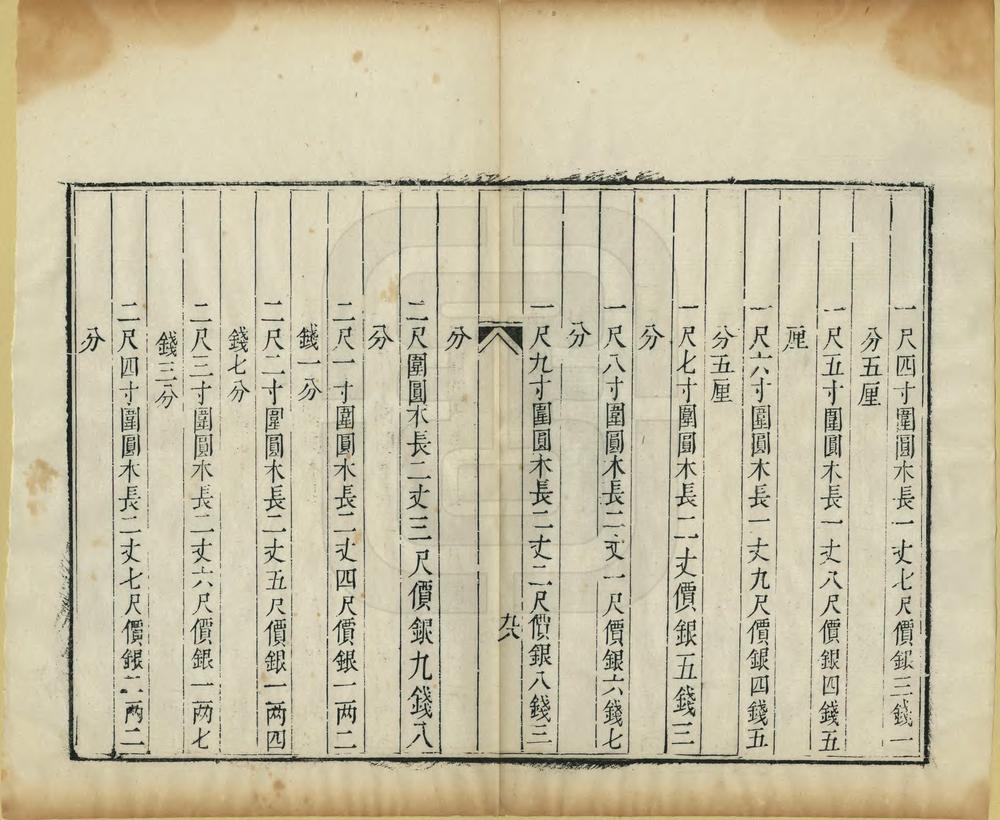 一尺四寸圍圓木長一丈七尺價銀三錢一
分五厘
一尺五寸圍圓木長一丈八尺價銀四錢五
厘
一尺六寸圍圓木長一丈九尺價銀四錢五
分五厘
一尺七寸圍圓木長二丈價銀五錢三
分
一尺八寸圍圓木長二丈一尺價銀六錢七
分
一尺九寸圍圓木長二丈二尺價銀八錢三
分
二尺圍圓木長二丈三尺價銀九錢八
分
二尺一寸圍圓木長二丈四尺價銀一两二
錢一分
二尺二寸圍圓木長二丈五尺價銀一两四
錢七分
二尺三寸圍圓木長二丈六尺價銀一两七
錢三分
二尺四寸圍圓木長二丈七尺價銀二两二
分